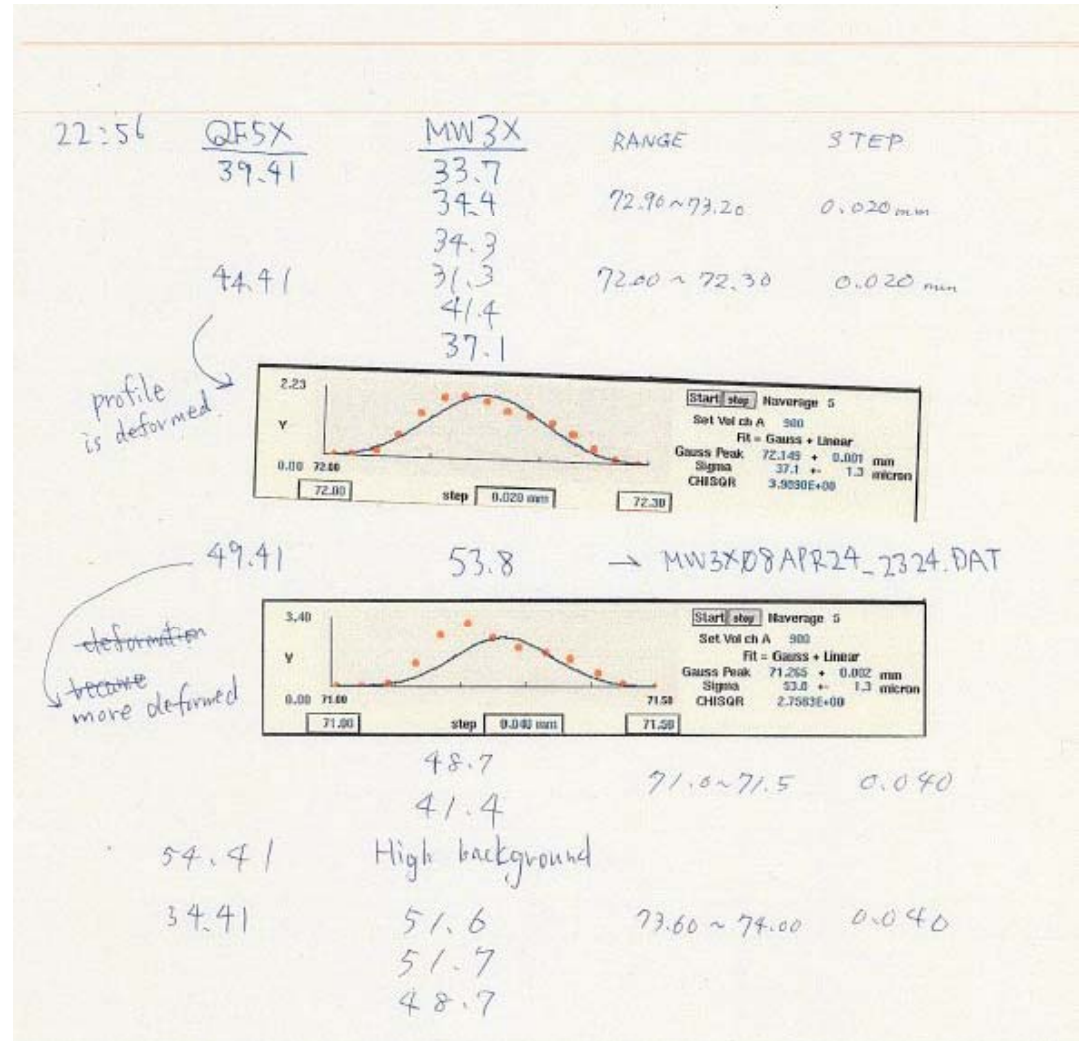 22:56 QF5X MW3X RANGE STEP
39.41 33.7
34.4 72.90~73.20 0.020mm
34.3
44.41 31.3 72.00 ~ 72.30 0.020 mm
41.4
37.1
profile
is deformed.
2.23
Y
0.00 72.00
72.00 step 0.020 mm 72.30
Start stop Naverage 5
Set Vol ch A 900
Fit = Gauss + Linear
Gauss Peak 72.149 + 0.001 mm
Sigma 37.1 +- 1.3 micron
CHISQR
49.41 53.8 → MW3X08APR24_2324.DAT
deformation
became
more deformed
3.40
Y
0.00 71.00 71.50
71.00 step 0.040 mm 71.50
Start stop Naverage 5
Set Vol ch A 900
Fit = Gauss + Linear
Gauss Peak 71.265 + 0.002 mm
Sigma 53.8 +- 1.3 micron
CHISQR
48.7 71.0~71.5 0.040
41.4
54.41 High background
34.41 51.6 73.60 ~ 74.00 0.040
51.7
48.7